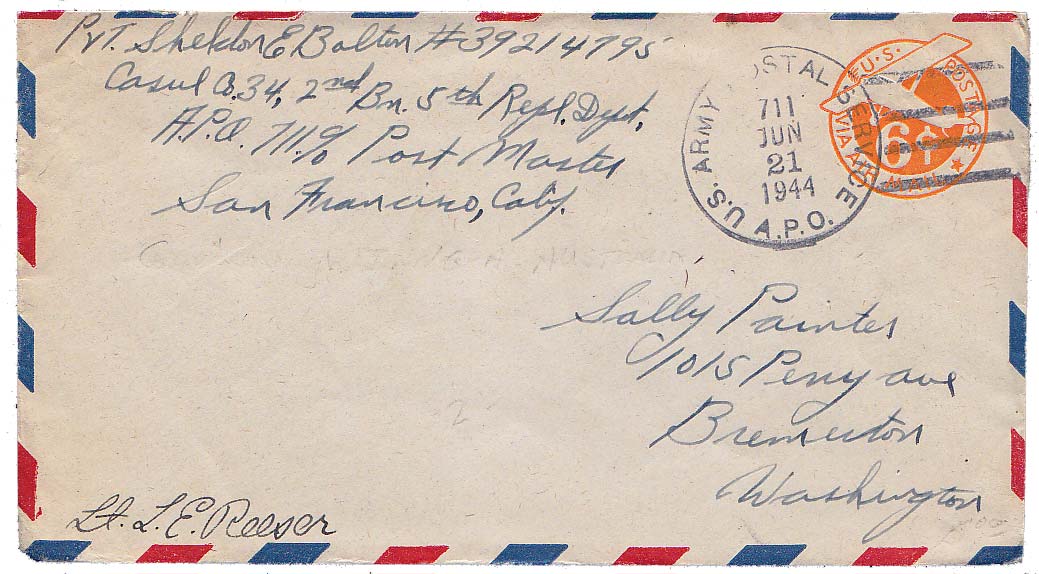 Pvt. Sheldon E Bolton #39214795
Casul Co. 34, 2nd Bn. 5th Repl. Dpt,
A.P.O. 711 % Post Master
San Francisco, Calif.
U.S. ARMY POSTAL SERVICE
711
JUN
21
1944
A.P.O.
U.S. POSTAGE
VIA AIR
6¢
AUSTRALIA
Sally Painter
1015 Perry ave
Bremerton
Washington
2
Lt. L. E. Reeser